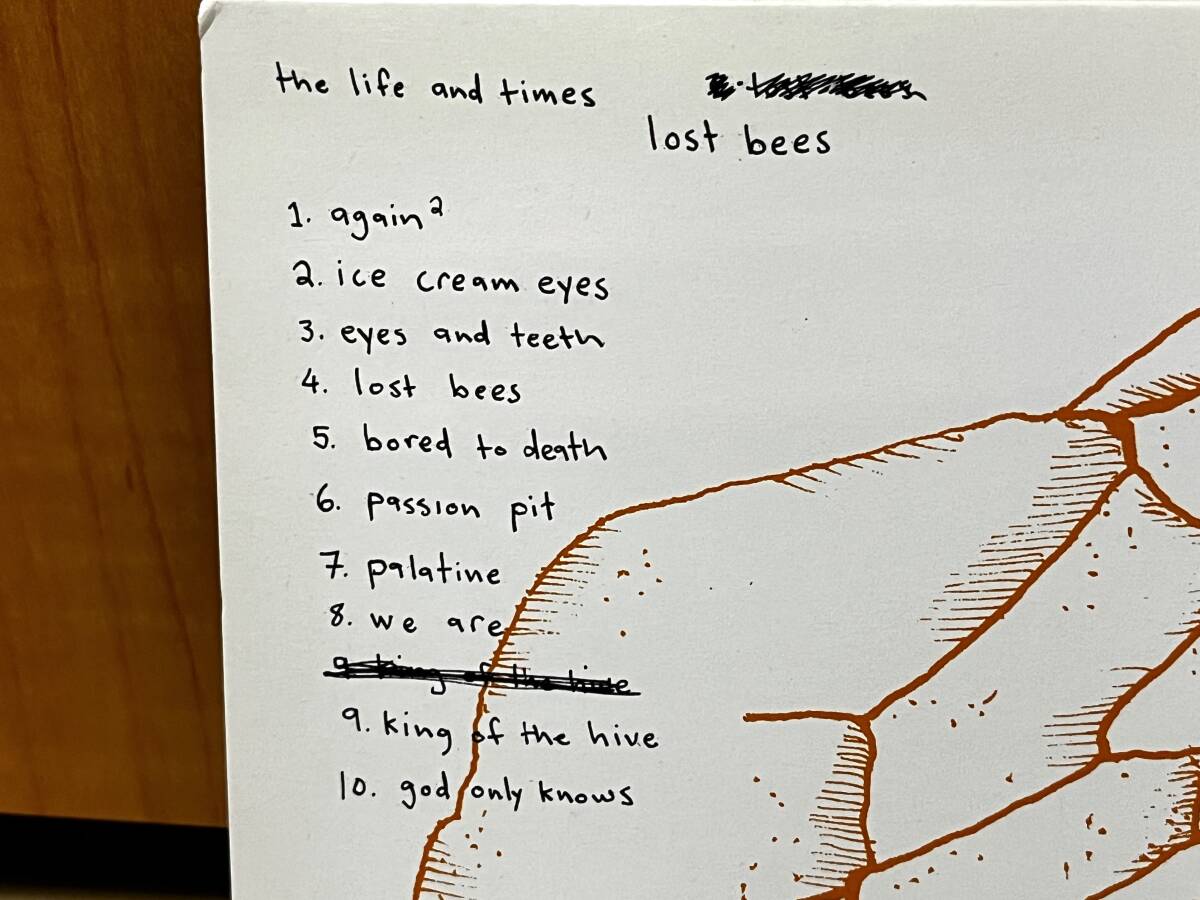 the life and times
lost bees
1. again²
2. ice cream eyes
3. eyes and teeth
4. lost bees
5. bored to death
6. passion pit
7. palatine
8. we are
9. king of the hive
9. king of the hive
10. god only knows